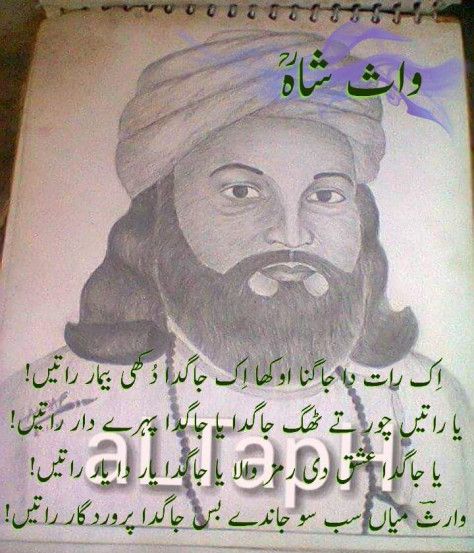 وارث شاہؒ
اِک رات دا جاگنا اوکھا اِک جاگدا دُکھی بیمار راتیں!
یا راتیں چور تے ٹھگ جاگدا یا جاگدا پہرے دار راتیں!
یا جاگدا عشق دی رمز والا یا جاگدا یار دا یار راتیں!
وارثؔ میاں سب سو جاندے بس جاگدا پروردگار راتیں!
aLTapH